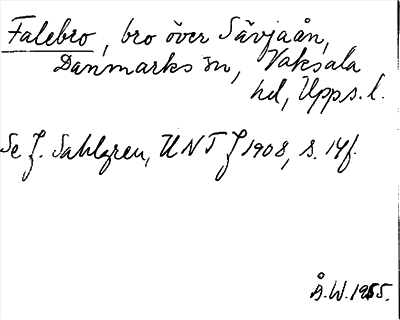 Falebro, bro över Sävjaån,
Danmarks sn, Vaksala
hd, Upps. l.
Se J. Sahlgren, UNT J 1908, s. 14f.
Å.W. 1955.